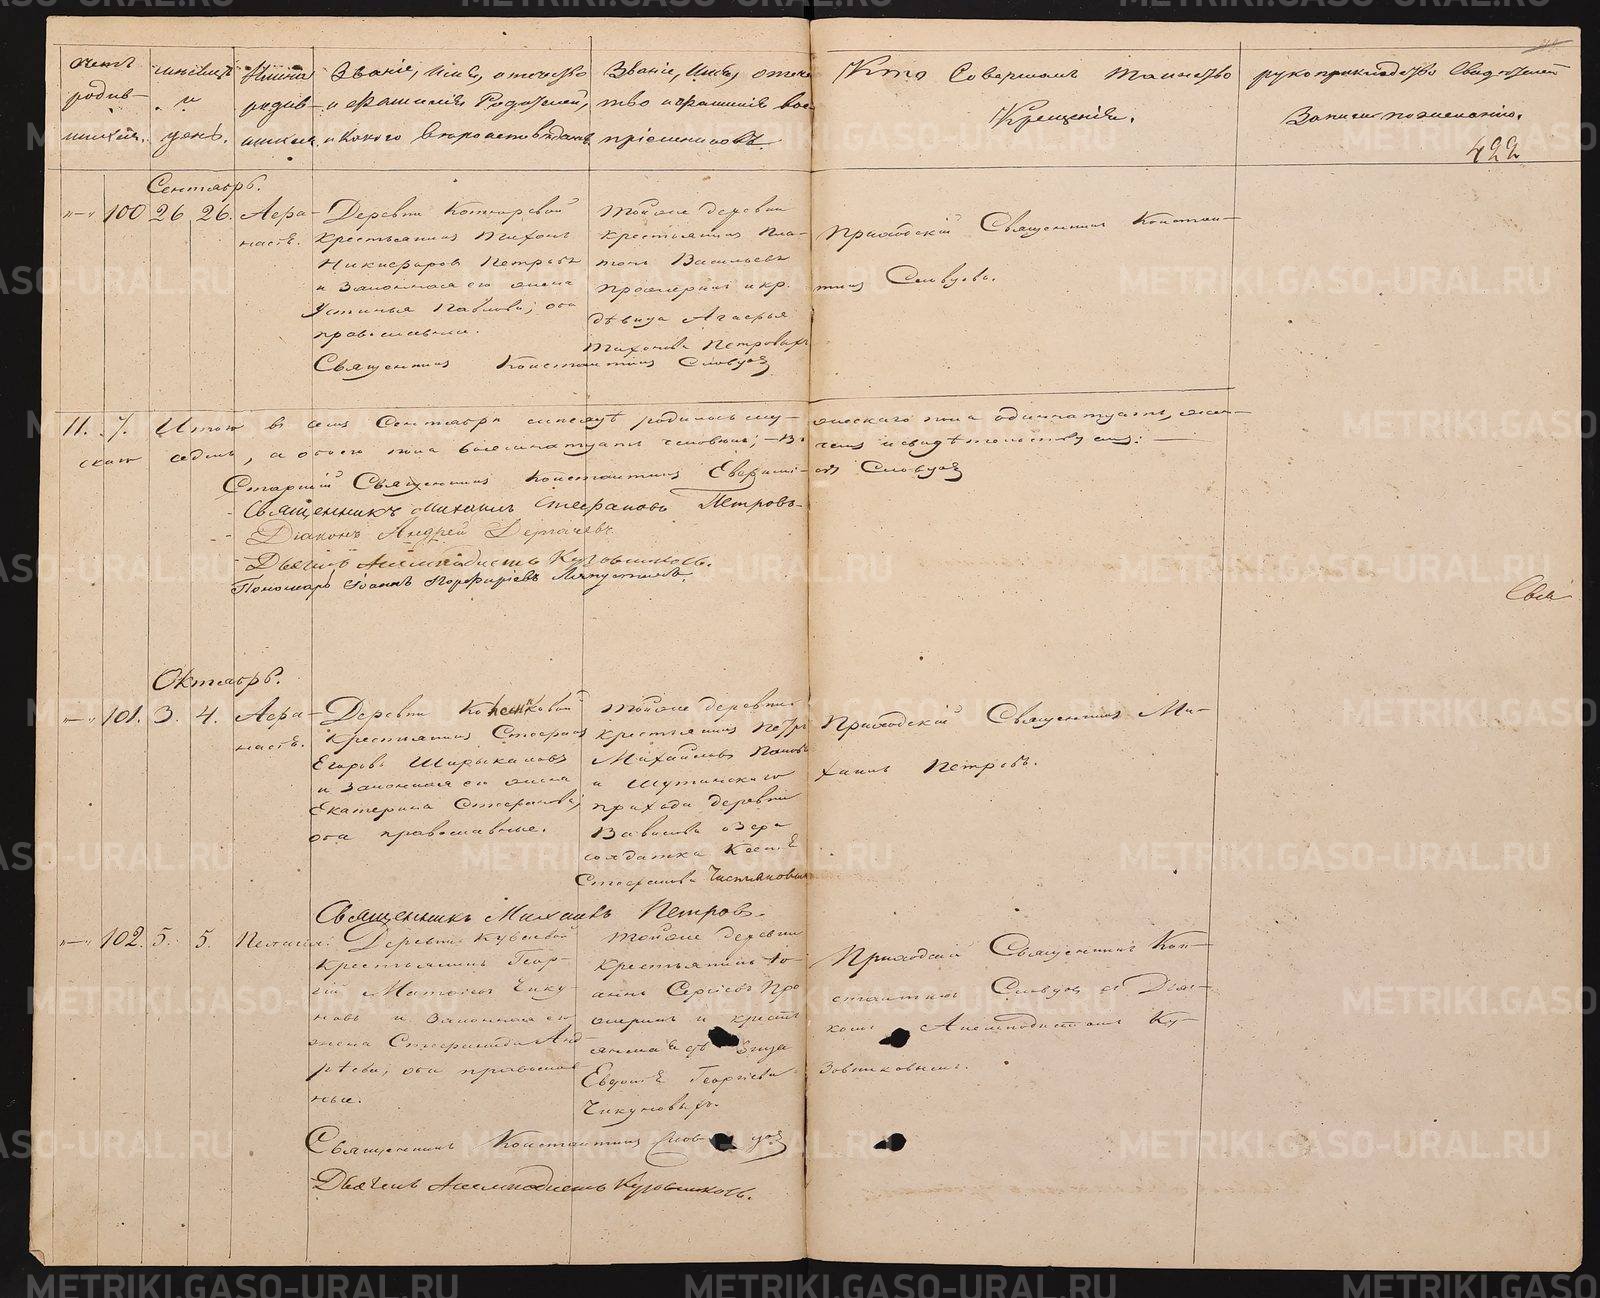 счетъ
родив-
шихся.
мѣсяцъ
и
день.
Имена
родив-
шихся.
Званіе, Имя, отчество
и фамилія Родителей,
и какого вѣроисповѣданія
Званіе, Имя, отче
тво и фамилія вос
пріемниковъ
Кто Совершалъ Таинство
Крещенія.
рукоприкладство Свидѣтелей
Записи по желанію.
422
Сентябрь.
100 26 26. Аѳа-
насій.
Деревни
крестьянинъ Тихонъ
Никифоровъ Петровъ
и Законная его жена
Устинья Павлова; оба
православные.
Тойже деревни
крестьянинъ Пла-
тонъ Васильевъ
и кр.
дѣвица Агафья
Тихонова Петровыхъ
Приходскій Священникъ Констан-
тинъ Словцовъ.
Священникъ Константинъ Словцовъ
11. 7. Итого въ семъ Сентябрѣ мѣсяцѣ родилось му-
жескаго пола одиннадцать, жен-
скаго семь, а обоего пола восемнадцать человѣкъ; — въ
чемъ и свидѣтельствуемъ: —
Старшій Священникъ Константинъ Словцовъ
Священникъ Михаилъ Стефановъ Петровъ
Діаконъ Андрей Дергачевъ
Дьячекъ Анемподистъ Кузовниковъ.
Пономарь Іоаннъ Порфиріевъ Ляпустинъ.
Свя
Октябрь.
101. 3. 4. Аѳа-
насій.
Деревни
крестьянинъ Стефанъ
Егоровъ Ширыкаловъ
и Законная его жена
Екатерина Стефанова;
оба православные.
Тойже деревни
крестьянинъ Петръ
Михайловъ Пановъ
и Шутинскаго
прихода деревни
озера
солдатка
Стефанова
Приходскій Священникъ Ми-
хаилъ Петровъ.
Священникъ Михаилъ Петровъ.
102. 5. 5. Пелагія.
Деревни
Крестьянинъ Геор-
гій Матѳіевъ Чику-
новъ и Законная его
жена Стефанида Анд-
рѣева; оба православ
ные.
Тойже деревни
Крестьянинъ Іо-
аннъ Сергіевъ
и кресть
янская дѣвица
Евдокія Георгіева
Чикуновыхъ.
Приходскій Священникъ Кон-
стантинъ Словцовъ съ Дьяч-
комъ Анемподистомъ Ку-
зовниковымъ.
Священникъ Константинъ Словцовъ
Дьячекъ Анемподистъ Кузовниковъ.
METRIKI.GASO-URAL.RU